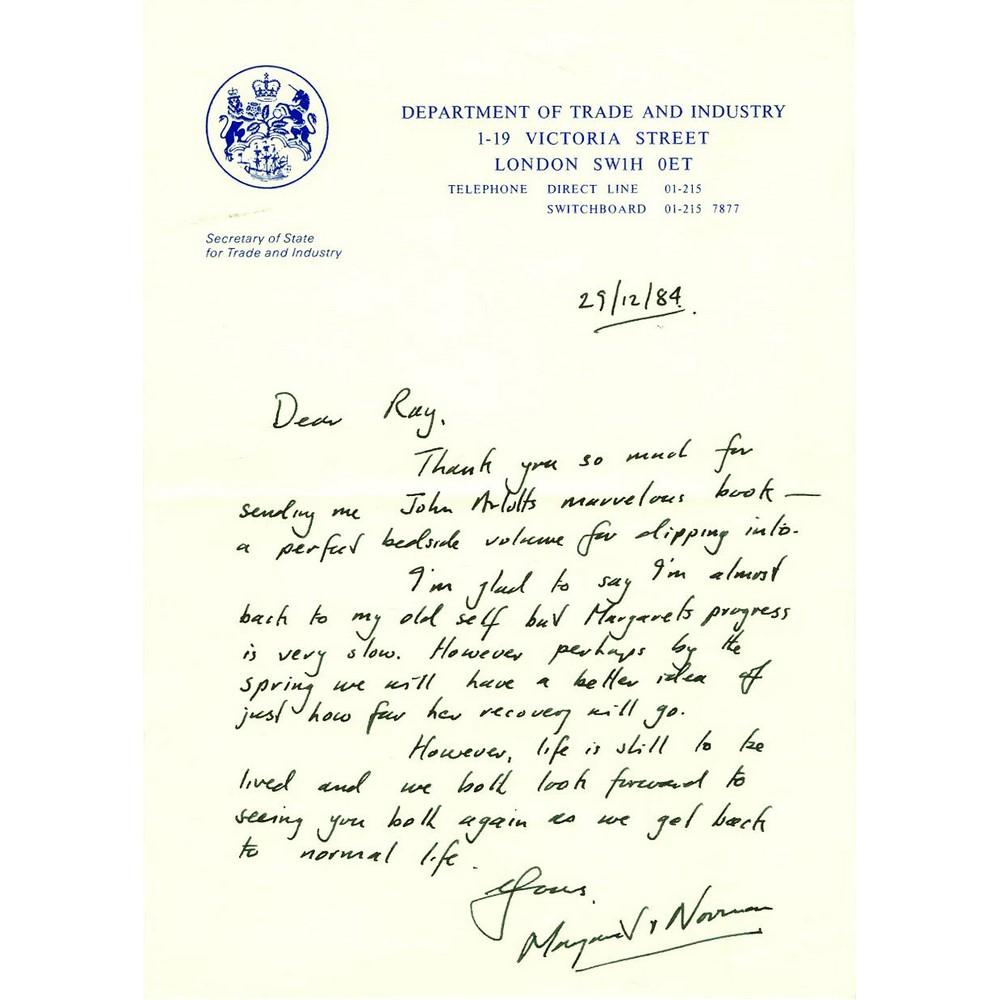 DEPARTMENT OF TRADE AND INDUSTRY
1-19 VICTORIA STREET
LONDON SW1H 0ET
TELEPHONE DIRECT LINE 01-215
SWITCHBOARD 01-215 7877
Secretary of State
for Trade and Industry
29/12/84.
Dear Ray,
Thank you so much for
sending me John Arlotts marvelous book —
a perfect bedside volume for dipping into.
I'm glad to say I'm almost
back to my old self but Margarets progress
is very slow. However perhaps by the
spring we will have a better idea of
just how far her recovery will go.
However, life is still to be
lived and we both look forward to
seeing you both again as we get back
to normal life.
Yours,
Margaret & Norman